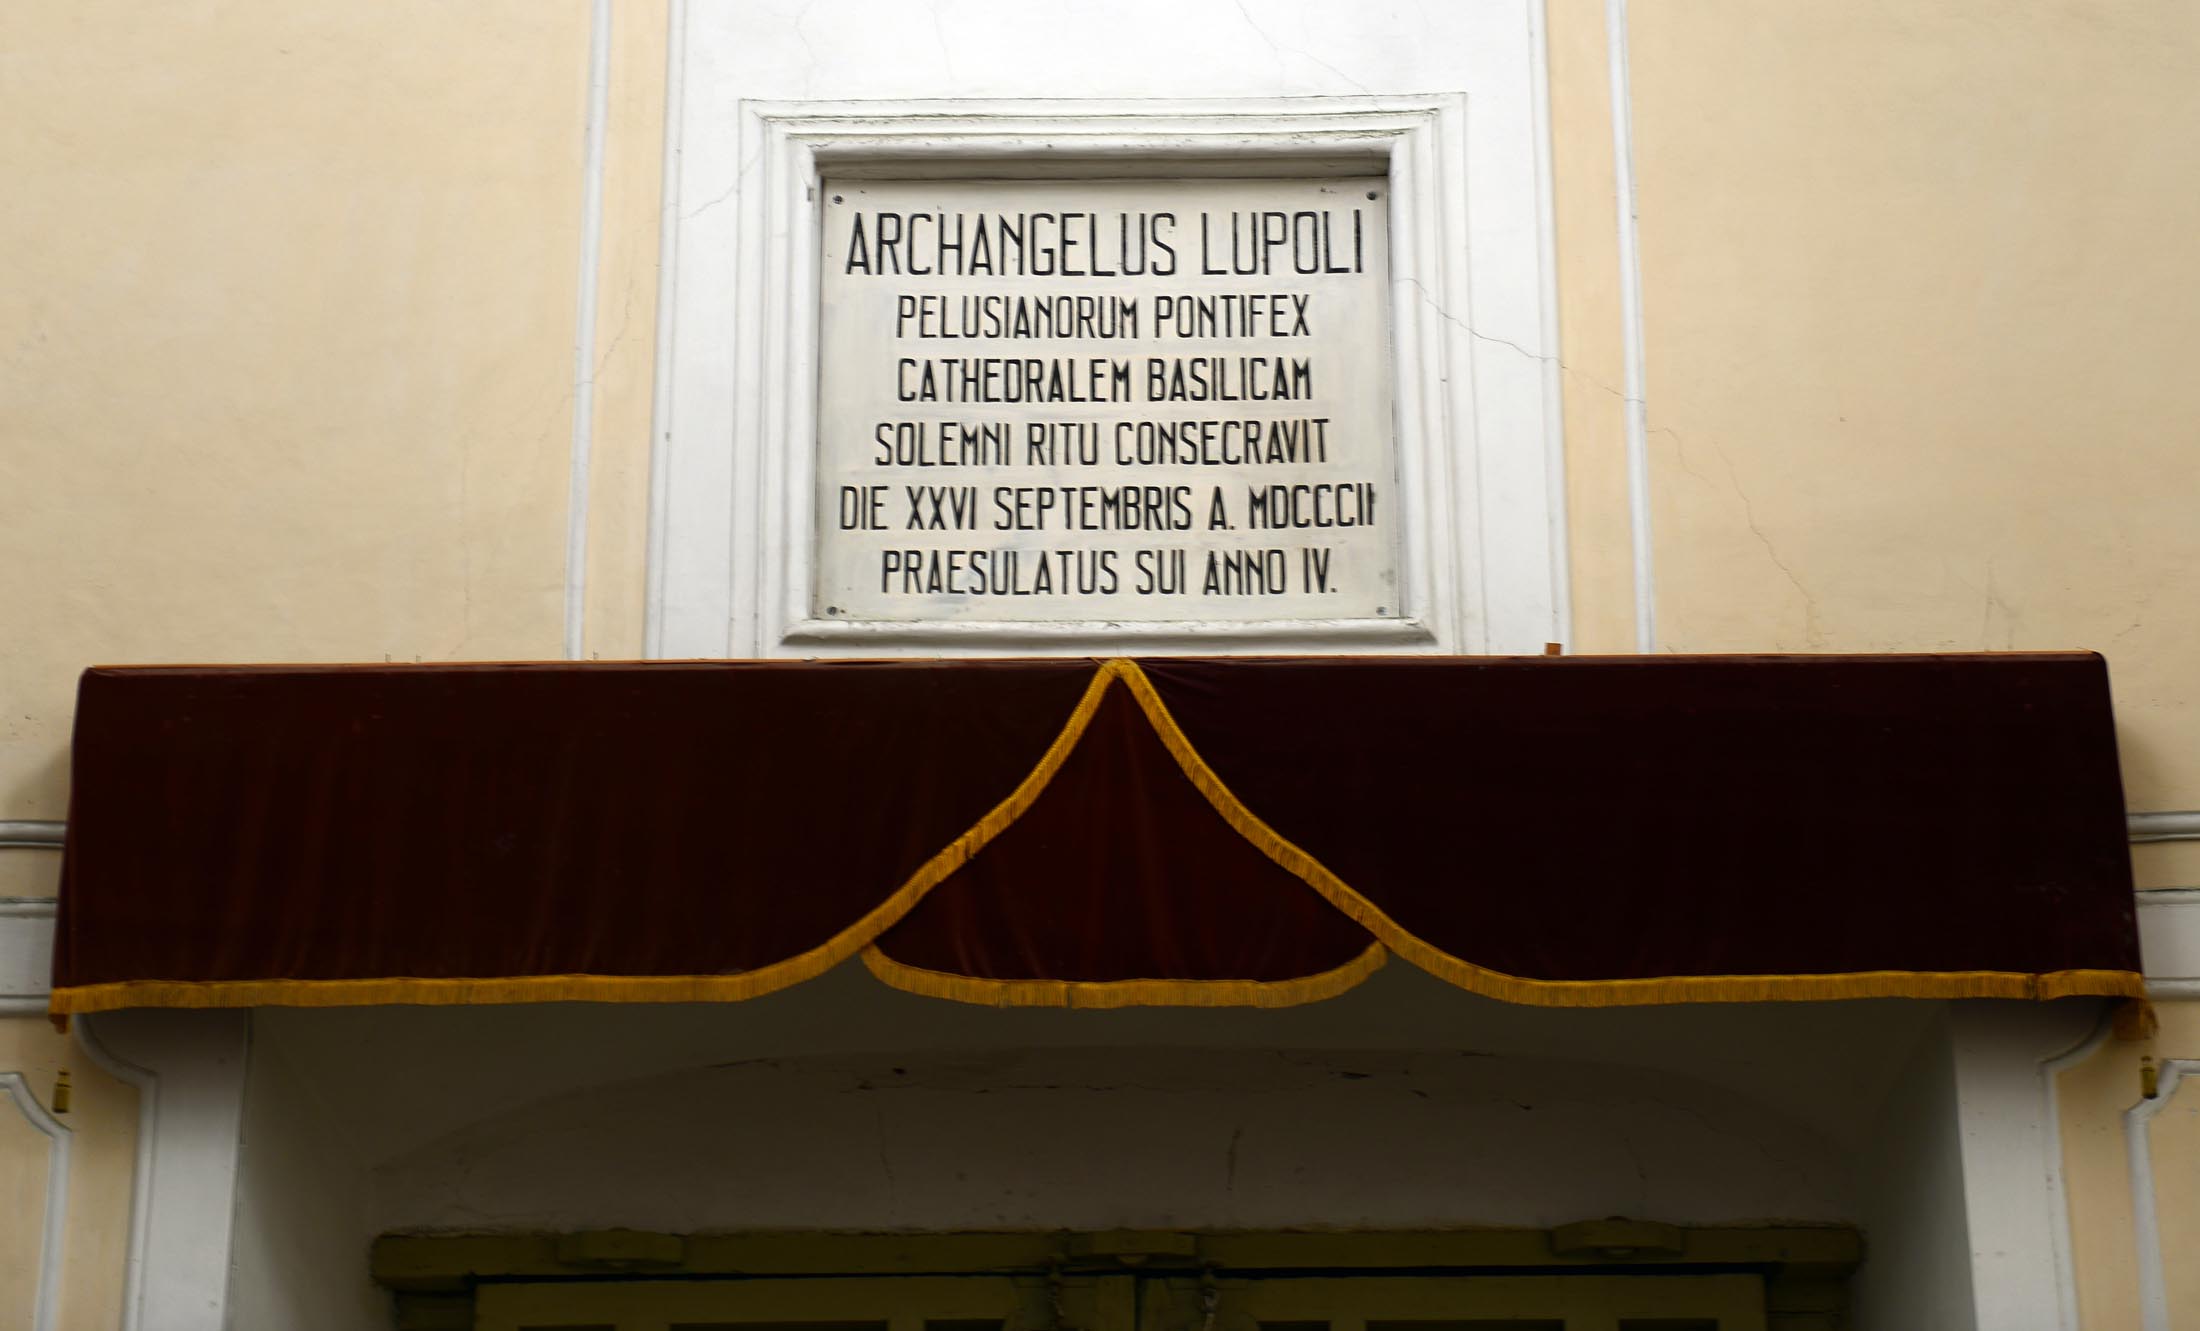 ARCHANGELUS LUPOLI
PELUSIANORUM PONTIFEX
CATHEDRALEM BASILICAM
SOLEMNI RITU CONSECRAVIT
DIE XXVI SEPTEMBRIS A. MDCCCII
PRAESULATUS SUI ANNO IV.